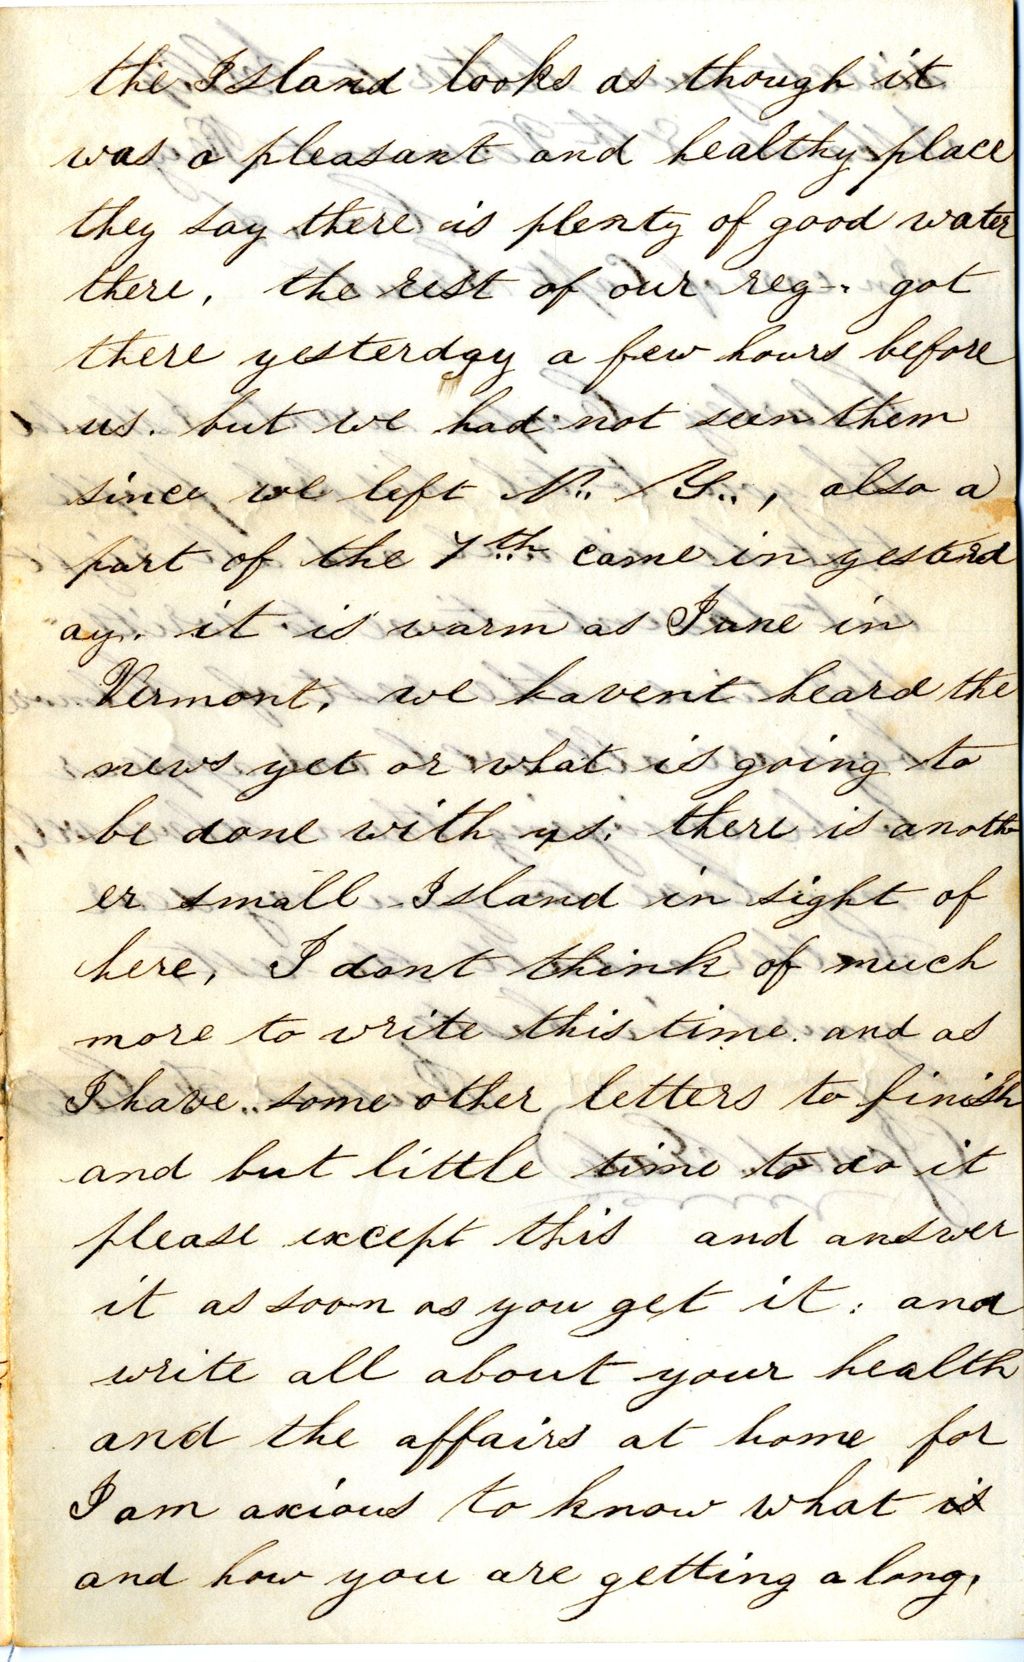 the Island looks as though it
was a pleasant and healthy place
they say there is plenty of good water
there, the rest of our reg.. got
there yesterday a few hours before
us. but we had not seen them
since we left N.. Y.., also a
part of the 7th came in yesterd
ay. it is warm as June in
Vermont, we havent heard the
news yet or what is going to
be done with us. there is anoth
er small Island in sight of
here, I dont think of much
more to write this time. and as
I have.. some other letters to finish
and but little time to do it
please except this and answer
it as soon as you get it: and
write all about your health
and the affairs at home for
I am axious to know what is
and how you are getting along,